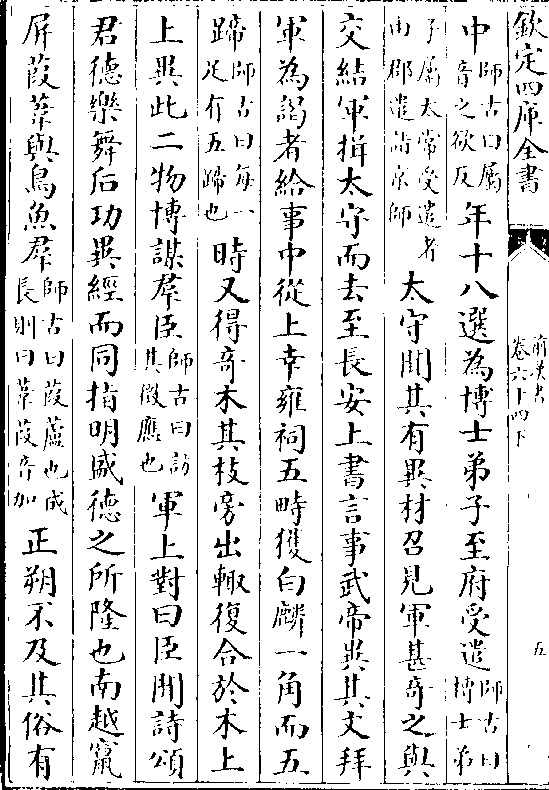 欽定四庫全書
前漢書
卷六十四下
五
中師古曰屬音之欲反年十八選為博士弟子至府受遣師古曰博士弟
子屬太常受遣者由郡遣詣京師太守聞其有異材召見軍甚奇之與
交結軍揖太守而去至長安上書言事武帝異其文拜
軍為謁者給事中從上幸雍祠五畤獲白麟一角而五
蹄師古曰每一足有五蹄也時又得奇木其枝旁出輒復合於木上
上異此二物博謀羣臣師古曰訪其徵應也軍上對曰臣聞詩頌
君德樂舞后功異經而同指明盛德之所隆也南越竄
屏葭葦與鳥魚羣師古曰葭蘆也成長則曰葦葭音加正朔不及其俗有